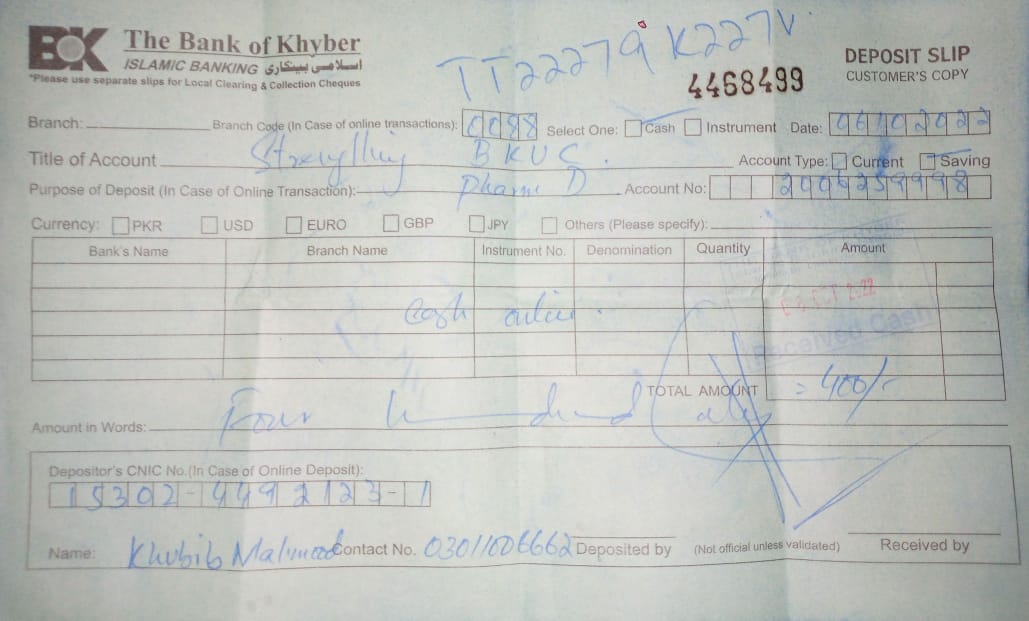 TT22279K227V
BK The Bank of Khyber
ISLAMIC BANKING اسلامی بینکاری
*Please use separate slips for Local Clearing & Collection Cheques
4468499
DEPOSIT SLIP
CUSTOMER'S COPY
Branch: Branch Code (In Case of online transactions): 0088 Select One: Cash Instrument Date: 06102022
Title of Account BKUC. Account Type: Current Saving
Purpose of Deposit (In Case of Online Transaction): Pharm D Account No: 2006259998
Currency: PKR USD EURO GBP JPY Others (Please specify):
Bank's Name Branch Name Instrument No. Denomination Quantity Amount
cash online.
Received Cash
TOTAL AMOUNT = 400/-
Amount in Words: Four hundred only
Depositor's CNIC No.(In Case of Online Deposit):
15302-4492123-1
Name: Khubib Mahmood Contact No. 03011006662 Deposited by (Not official unless validated) Received by